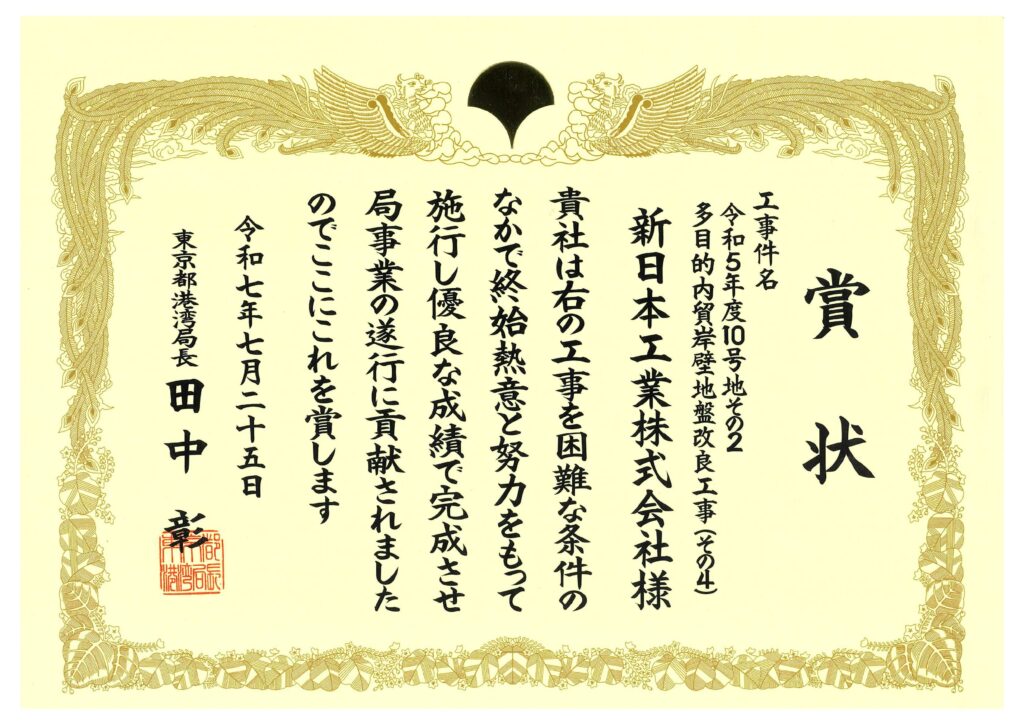 賞状
工事件名
令和5年度10号地その2
多目的内貿岸壁地盤改良工事(その4)
新日本工業株式会社様
貴社は右の工事を困難な条件の
なかで終始熱意と努力をもって
施行し優良な成績で完成させ
局事業の遂行に貢献されました
のでここにこれを賞します
令和七年七月二十五日
東京都港湾局長 田中 彰
東京都港湾局長